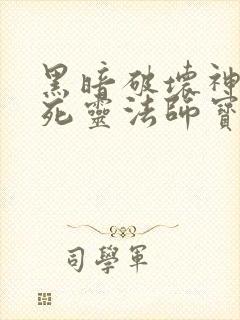 黑暗破壞神
死靈法師寶
司學軍